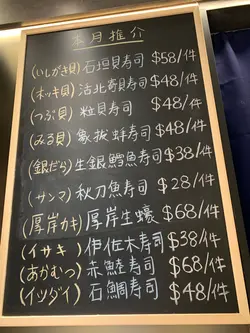 本月推介
(いしがき貝) 石垣貝寿司 $58/件
(ホッキ貝) 活北寄貝寿司 $48/件
(つぶ貝) 粒貝寿司 $48/件
(みる貝) 象拔蚌寿司 $48/件
(銀だら) 生銀鱈魚寿司 $38/件
(サンマ) 秋刀魚寿司 $28/件
(厚岸カキ) 厚岸生蠔 $68/件
(イサキ) 伊佐木寿司 $38/件
(あかむつ) 赤鯥寿司 $68/件
(イシダイ) 石鯛寿司 $48/件